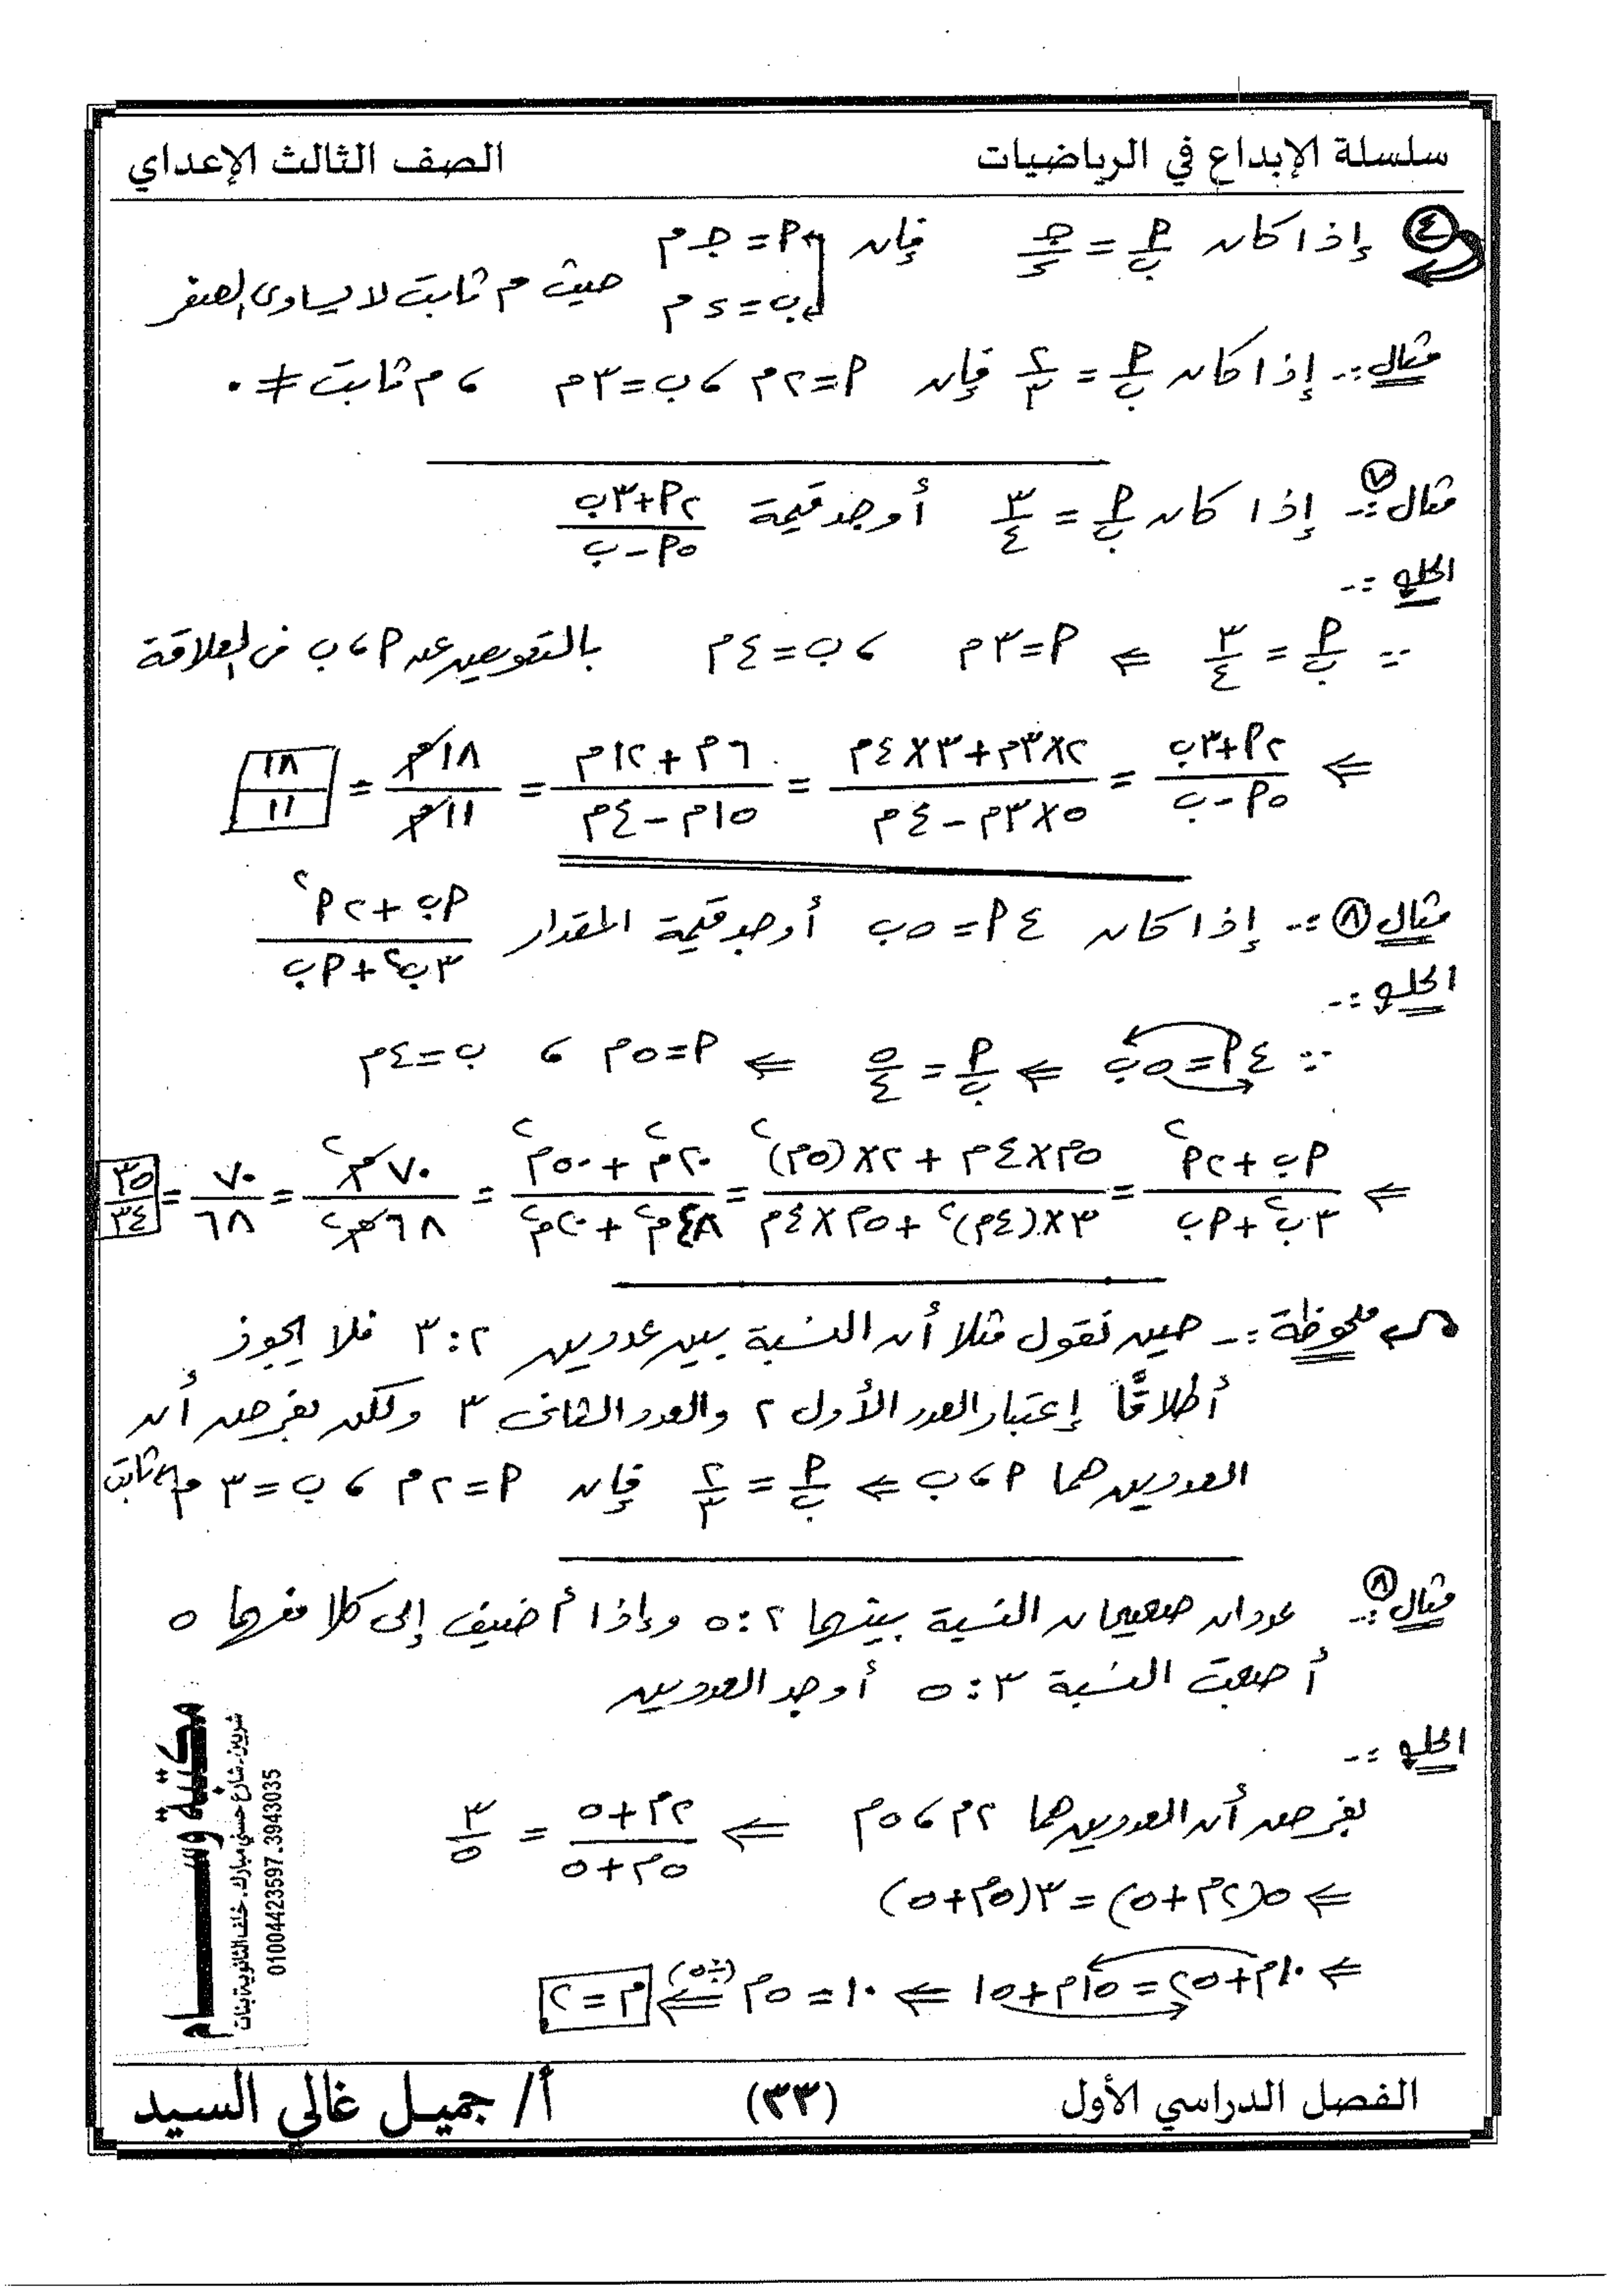 سلسلة الإبداع في الرياضيات الصف الثالث الإعداي
(٤) إذا كان أ/ب = جـ/د فإن أ = جـ م
ب = د م حيث م ثابت لا يساوى الصفر
مثال :- إذا كان أ/ب = ٢/٣ فإن أ = ٢م ، ب = ٣م ، م ثابت ≠ ٠
مثال (٧) :- إذا كان أ/ب = ٣/٤ أوجد قيمة (٢أ + ٣ب)/(٥أ - ب)
الحل :-
∵ أ/ب = ٣/٤ ⇐ أ = ٣م ، ب = ٤م بالتعويض عن أ ، ب فى العلاقة
⇐ (٢أ + ٣ب)/(٥أ - ب) = (٢×٣م + ٣×٤م)/(٥×٣م - ٤م) = (٦م + ١٢م)/(١٥م - ٤م) = ١٨م/١١م = ١٨/١١
مثال (٨) :- إذا كان ٤أ = ٥ب أوجد قيمة المقدار (أب + ٢أ²)/(٣ب² + أب)
الحل :-
∵ ٤أ = ٥ب ⇐ أ/ب = ٥/٤ ⇐ أ = ٥م ، ب = ٤م
⇐ (أب + ٢أ²)/(٣ب² + أب) = (٥م×٤م + ٢×(٥م)²)/(٣×(٤م)² + ٥م×٤م) = (٢٠م² + ٥٠م²)/(٤٨م² + ٢٠م²) = ٧٠م²/٦٨م² = ٧٠/٦٨ = ٣٥/٣٤
ملحوظة :- حين نقول مثلا أن النسبة بين عددين ٢ : ٣ فلا يجوز
أطلاقًا إعتبار العدد الأول ٢ والعدد الثانى ٣ ولكن نفرض أن
العددين هما أ ، ب ⇐ أ/ب = ٢/٣ فإن أ = ٢م ، ب = ٣م ، م ثابت
مثال (٨) :- عددان صحيحان النسبة بينهما ٢ : ٥ وإذا أضيف إلى كلا منهما ٥
أصبحت النسبة ٣ : ٥ أوجد العددين
الحل :-
بفرض أن العددين هما ٢م ، ٥م ⇐ (٢م + ٥)/(٥م + ٥) = ٣/٥
⇐ ٥(٢م + ٥) = ٣(٥م + ٥)
⇐ ١٠م + ٢٥ = ١٥م + ١٥ ⇐ ١٠ = ٥م ⇐ (÷٥) م = ٢
مكتبة وســـام
شربين.شارع حسني مبارك.خلف الثانوية بنات
01004423597.3943035
الفصل الدراسي الأول (٣٣) أ/ جميل غالي السيد